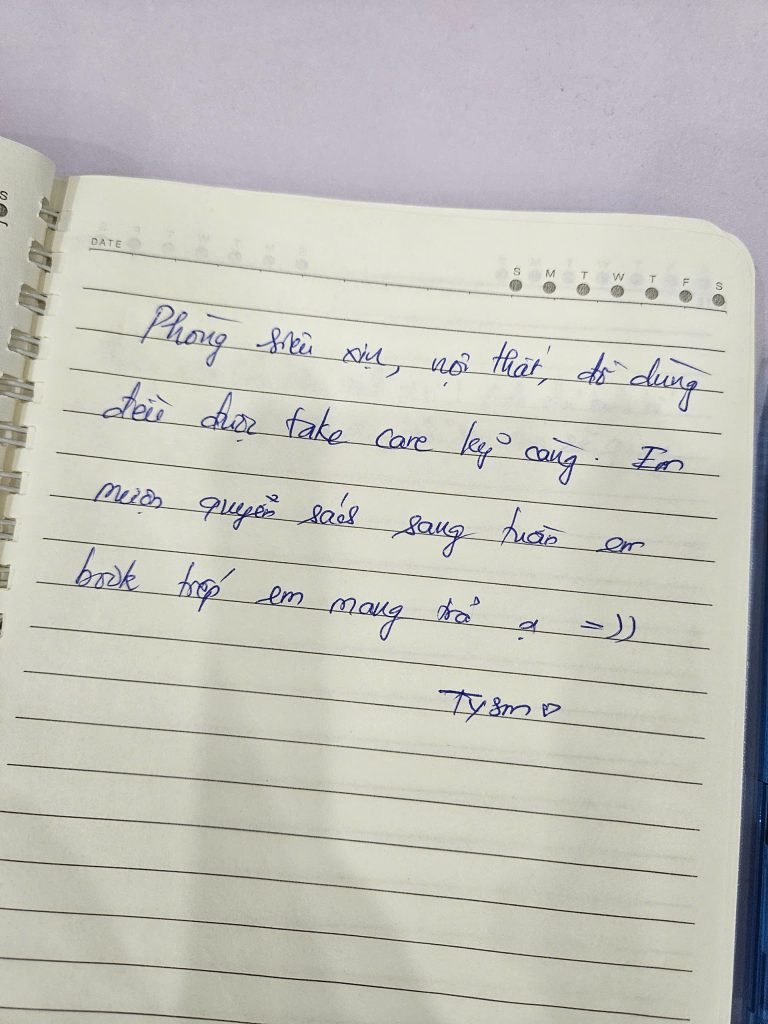 S
DATE
S M T W T F S
Phòng siêu xịn, nội thất, đồ dùng
đều được take care kỹ càng. Em
mượn quyển sách sang tuần em
book tiếp em mang trả ạ =))
Tysm ♡